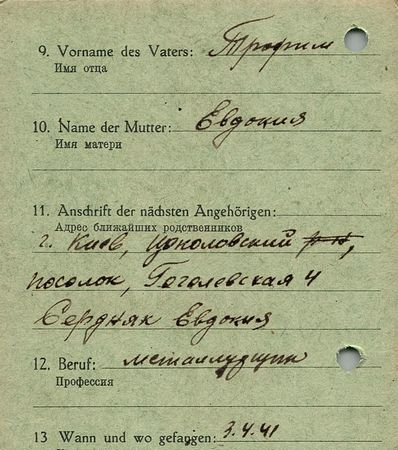 9. Vorname des Vaters: Трофим
Имя отца
10. Name der Mutter: Евдокия
Имя матери
11. Anschrift der nächsten Angehörigen:
Адрес ближайших родственников
г. Киев,
посолок, Гоголевская 4
Сердняк Евдокия
12. Beruf:
Профессия
13 Wann und wo gefangen: 3.4.41